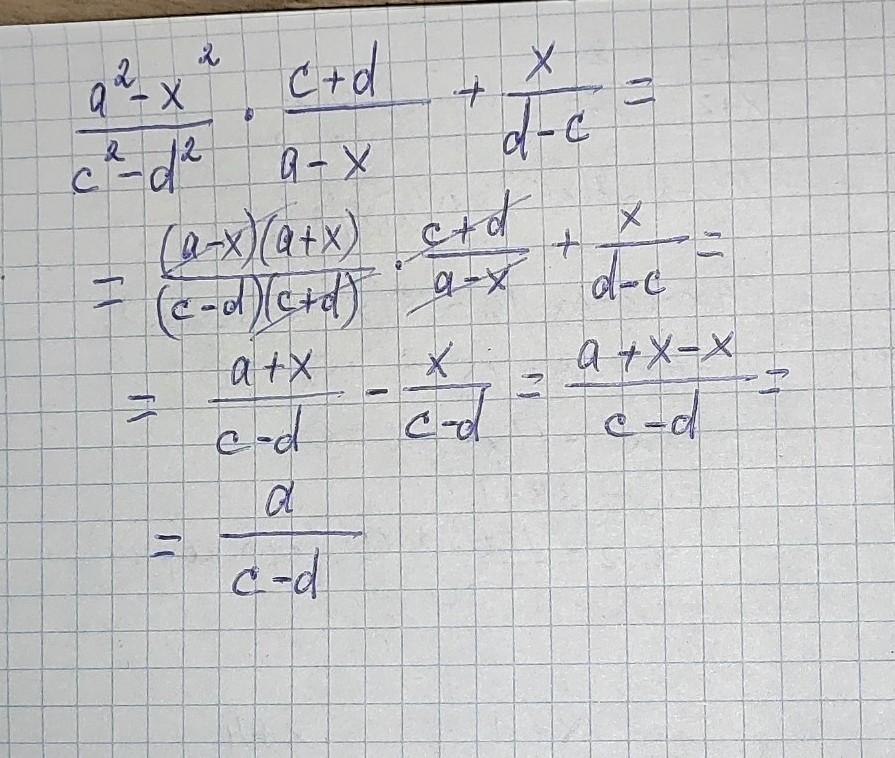 (a² - x²)/(c² - d²) · (c + d)/(a - x) + x/(d - c) =
= ((a - x)(a + x))/((c - d)(c + d)) · (c + d)/(a - x) + x/(d - c) =
= (a + x)/(c - d) - x/(c - d) = (a + x - x)/(c - d) =
= a/(c - d)